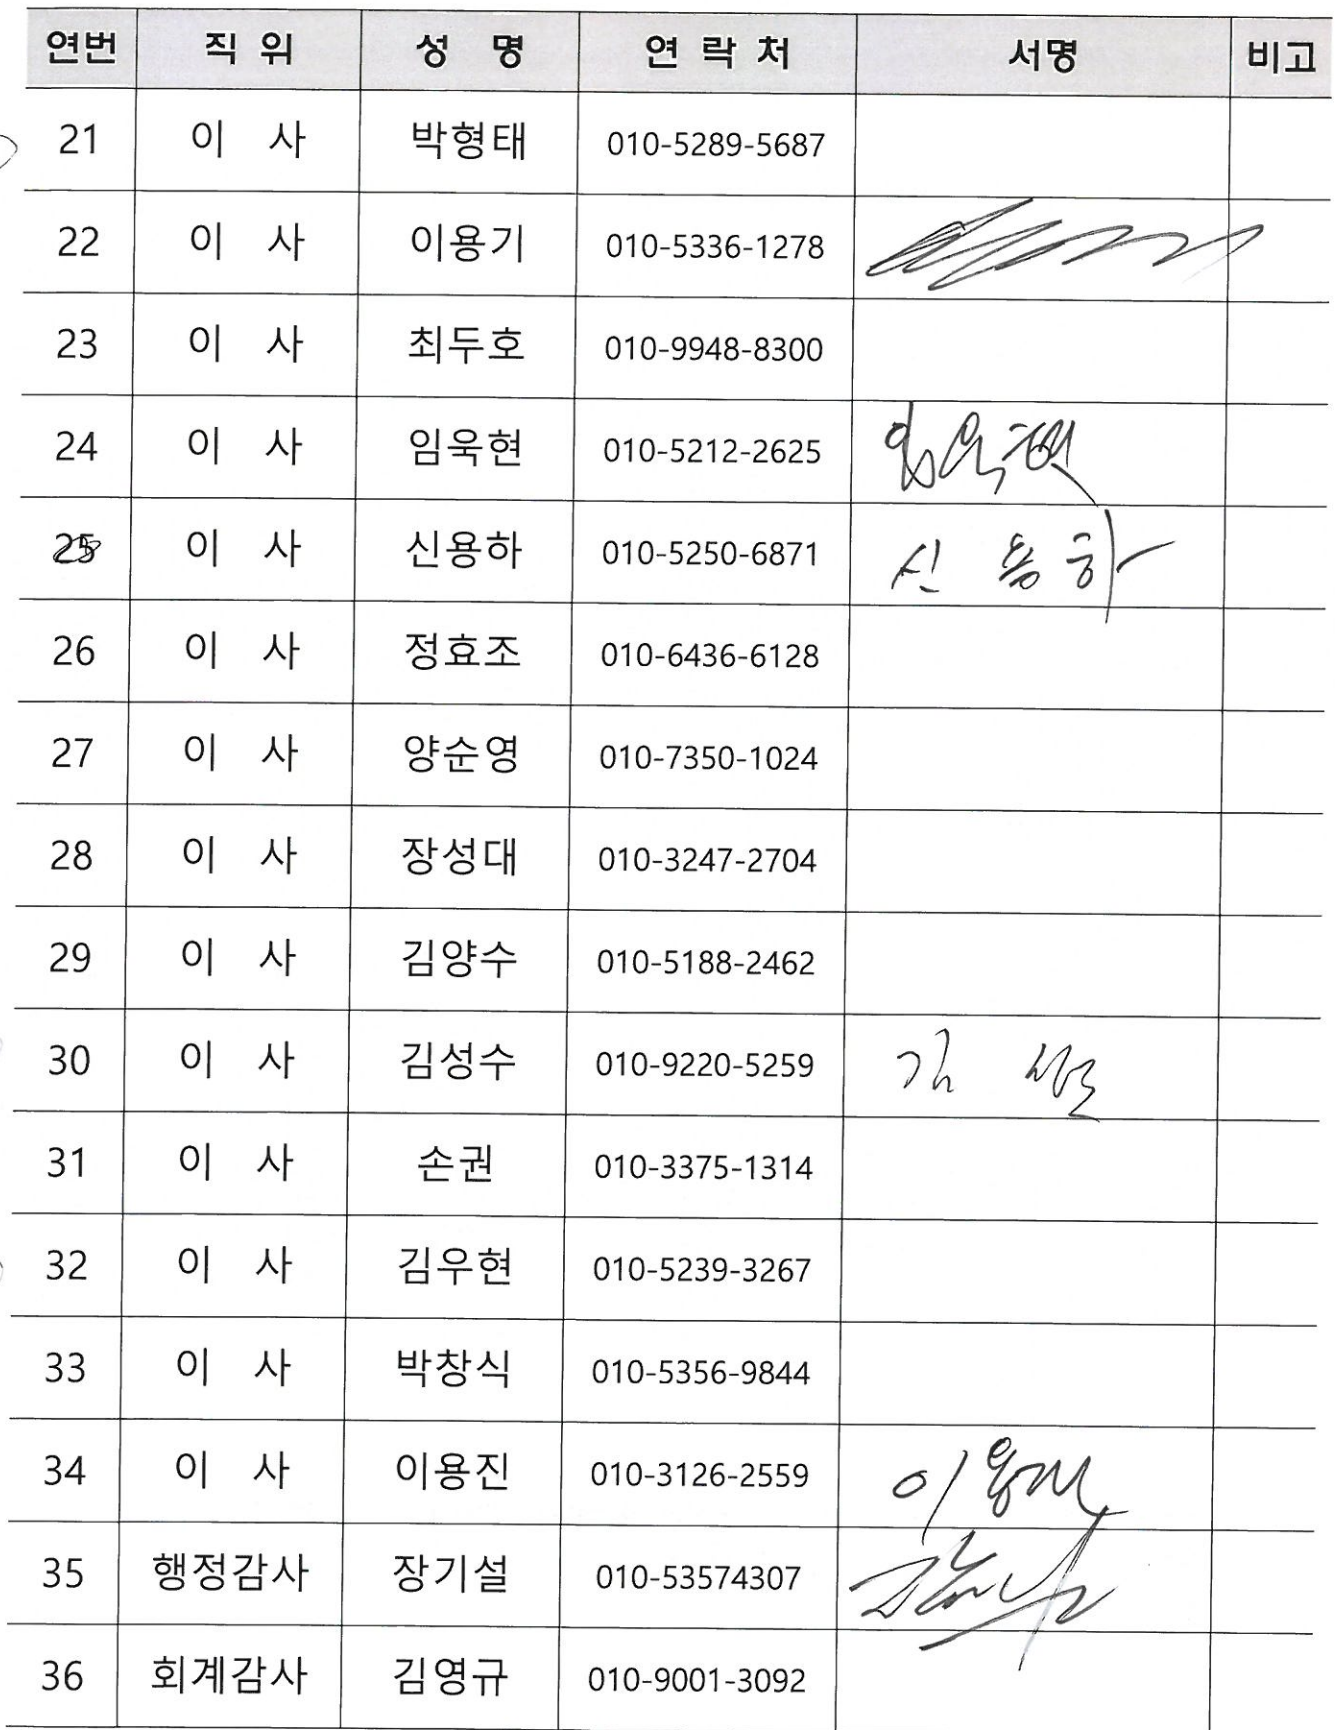 연번 직위 성명 연락처 서명 비고
21 이사 박형태 010-5289-5687
22 이사 이용기 010-5336-1278
23 이사 최두호 010-9948-8300
24 이사 임욱현 010-5212-2625 임욱현
25 이사 신용하 010-5250-6871 신용하
26 이사 정효조 010-6436-6128
27 이사 양순영 010-7350-1024
28 이사 장성대 010-3247-2704
29 이사 김양수 010-5188-2462
30 이사 김성수 010-9220-5259 김
31 이사 손권 010-3375-1314
32 이사 김우현 010-5239-3267
33 이사 박창식 010-5356-9844
34 이사 이용진 010-3126-2559 이용진
35 행정감사 장기설 010-53574307
36 회계감사 김영규 010-9001-3092